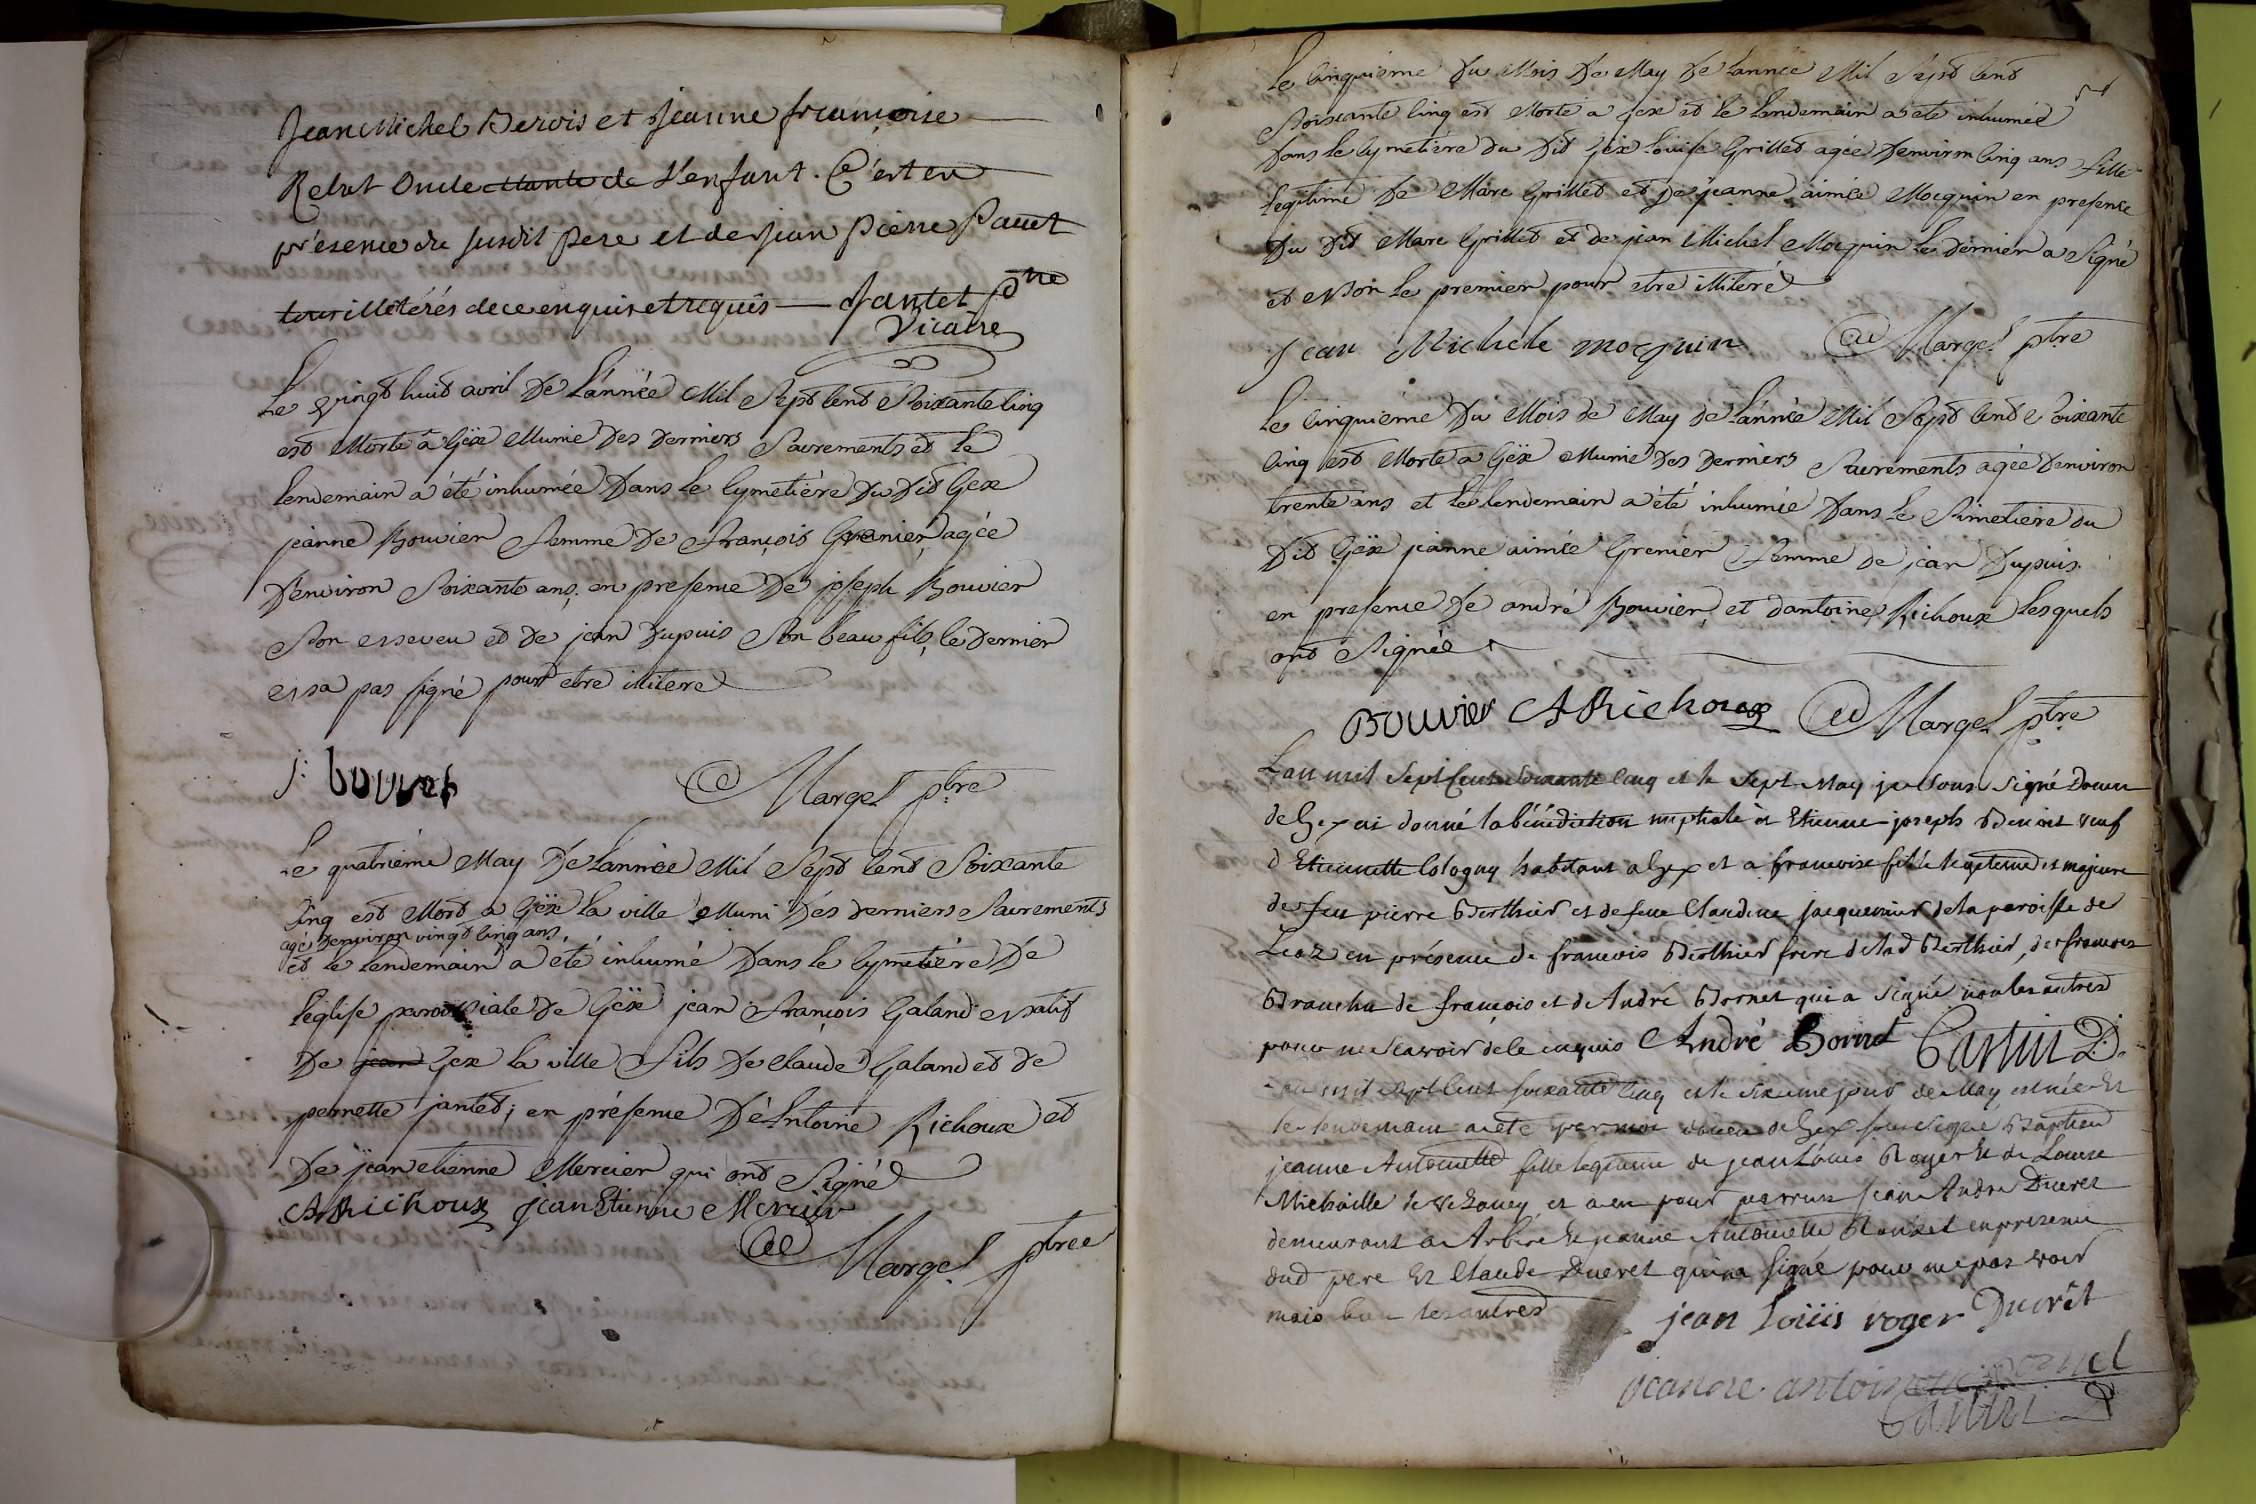 Jean Michel Dervis et Jeanne françoise
Relut Oncle et tante de L'enfant. C'est en
présence du susdit pere et de jean pierre Pauet
tous illétérés de ce enquis et requis — Jantet ptre
Vicaire
Le vingt huit avril De L'année Mil Sept Cent Soixante Cinq
est Morte à Gëx Munie Des Derniers Sacrements et le
lendemain a été inhumée Dans le Cymetière Du Dit Gex
jeanne Bouvier Femme De François Grenier, agée
D'environ Soixante ans, en presence De joseph Bouvier
Son Neveu et de jean Dupuis Son beau fils, le Dernier
N'a pas signé pour etre illitere
j: bouvier
Margel ptre
Le quatriéme May De L'année Mil Sept Cent Soixante
Cinq est Mort a Gëx la ville Muni Dés derniers Sacrements
agé Denviron vingt cinq ans,
et le lendemain a été inhumé Dans le Cymetière De
l'église paroissiale De Gëx jean François Galand Natif
De jean Gex la ville Fils De Claude Galand et de
pernette jantet; en présence D'Antoine Richoux et
De jean etienne Mercier qui ont Signé
A Richoux Jean Etienne Mercier
Margel ptre
Le Cinquiéme Du Mois De May De L'année Mil Sept Cent
Soixante Cinq est Morte a Jex et le Lendemain a été inhumée
Dans le Cymetière du Dit Gëx Louise Grillet agée D'environ Cinq ans Fille
Légitime De Marc Grillet et De jeanne aimée Mocquin en presence
Du Dit Marc Grillet et de jean Michel Mocquin le Dernier a Signé
et Non le premier pour etre illiteré
Jean Michele mocquin Margel ptre
Le Cinquiéme Du Mois de May de L'année Mil Sept Cent Soixante
Cinq est Morte a Gëx Munie Des Derniers Sacrements agée D'environ
trente ans et le lendemain a été inhumée Dans le Simetiere du
Dit Gëx jeanne aimée Grenier Femme de jean Dupuis.
en presence De andré Bouvier, et d'antoine Richoux lesquels
ont Signée
Bouvier A Richoux Margel ptre
L'an mil sept Cent soixante Cinq et le sept May je sous signé Doyen
de Gex ai donné la bénédiction nuptiale à Etienne joseph Benoit veuf
d'Etiennette Cologny habitant a Gex et a francoise fille legitime et majeure
de feu pierre Berthier et de feue Claudine jacquemier de la paroisse de
Leaz en présence de francois Berthier frere de lad Berthier, de francois
de françois et d'André Bornet qui a signé non les autres
pour ne scavoir de ce enquis André Bornet Castin D.
an mil sept Cent soixante Cinq et le sixieme jour de May est née et
le lendemain a été par moi doyen de Gex sous signé Baptisée
jeanne Antoinette fille legitime de jean Louis Roger et de Louise
Michaille et a eu pour parrain jean André Ducret
demeurant a et jeanne Antoinette en presence
dud pere et Claude Ducret qui n'a signé pour ne pas
mais les autres
jean Loüis roger Ducrét
jeanne antoinette
Castin D